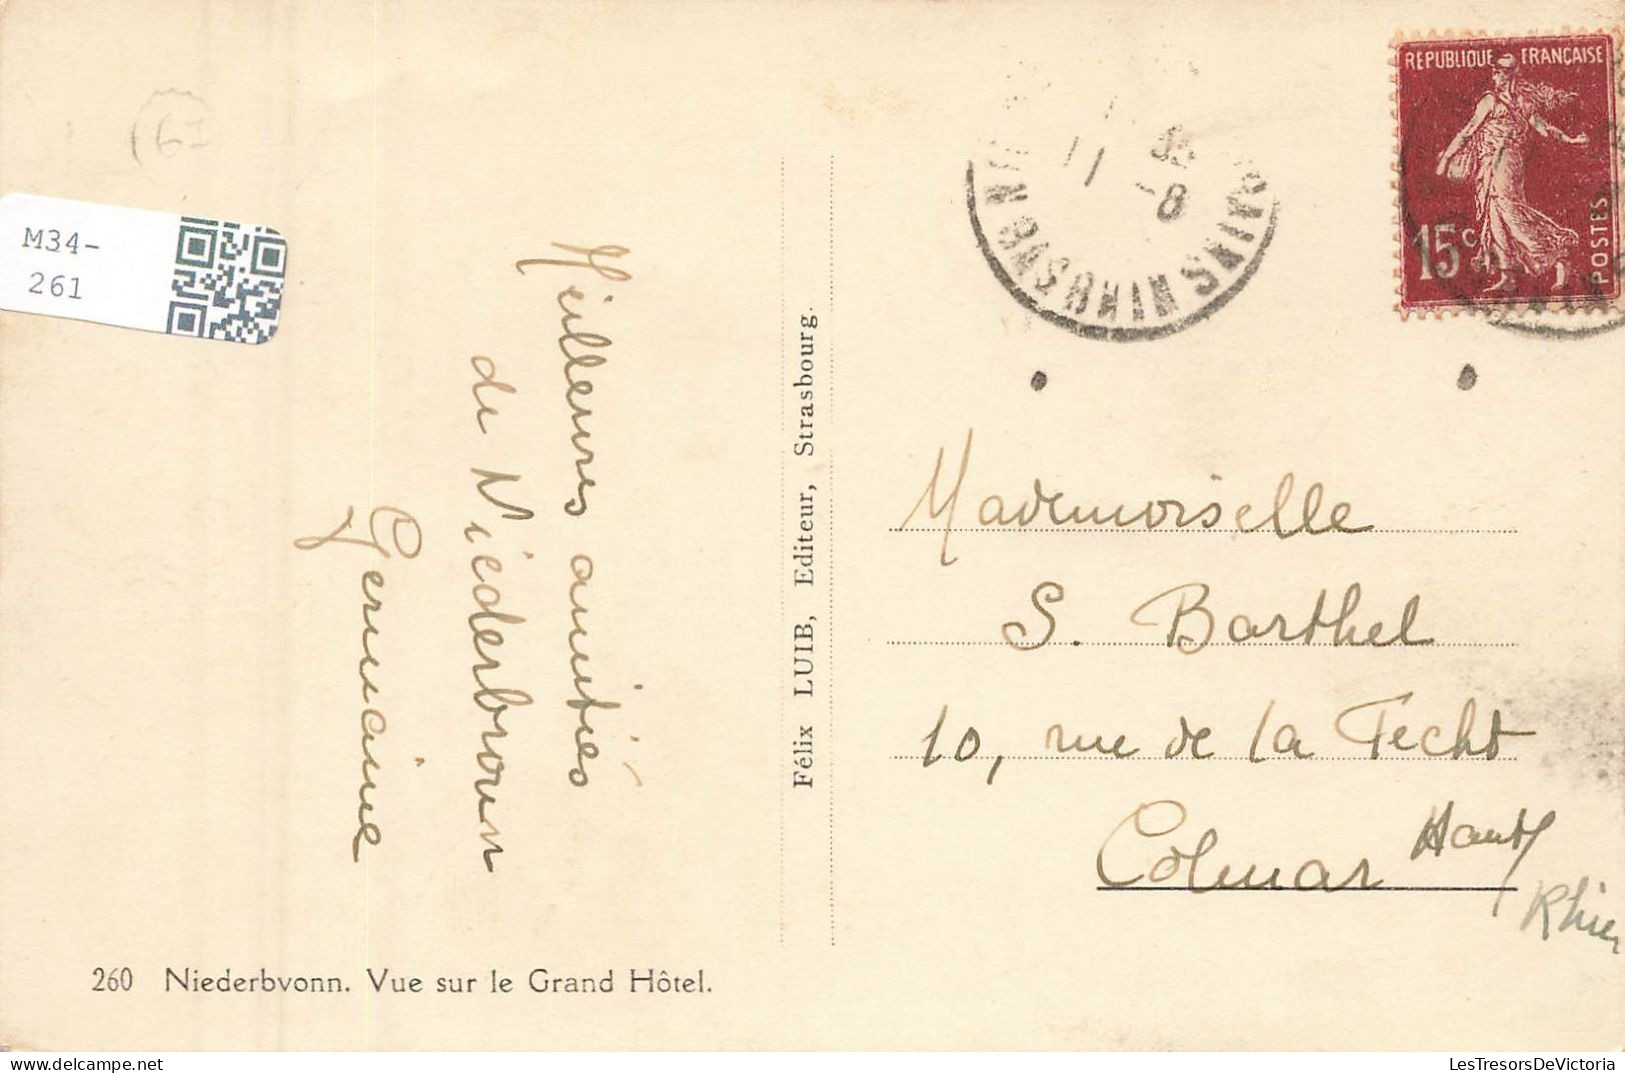 M34-
261
Meilleures amitiés
de Niederbronn
Germaine
Félix LUIB, Editeur, Strasbourg.
REPUBLIQUE FRANÇAISE
15c
POSTES
11 -8
Mademoiselle
S. Barthel
10, rue de la Fecht
Colmar
Haut
Rhin
260 Niederbvonn. Vue sur le Grand Hôtel.
LesTresorsDeVictoria